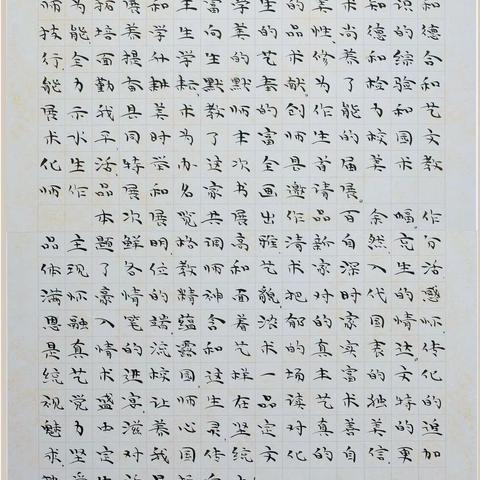 师为拓展和丰富学生的美术知识和
技能培养学生向美的性尚德的德
行全面提升学生的艺术修养和综合
能力勤奋耕耘默默奉献为了检验和
展示我县美术教师的创作能力和艺
术水平同时为了丰富师生的校园文
化生活特举办这次全县首届美术教
师作品展和名家书画邀请展
本次展览共展出作品百余幅作
品主题鲜明格调高雅清新自然充分
体现了各位教师和艺术家深入生活
满怀豪情的精神面貌把对时代的感
思融入笔端蕴含着浓郁的家国情怀
是真情的流露和艺术的真实表达传
统艺术进校园这样一场丰富的文化
视觉盛宴让师生在品读艺术独特的
魅力中滋养心灵坚定对真善美的追
求坚定对我国传统文化的自信更加